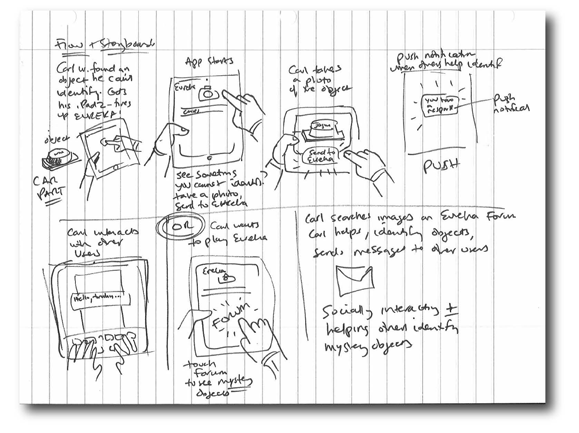 Flow + Storyboard
Carl W. found an
object he can't
identify. Gets
his iPad2 - fires
up EUREKA!
object
CAR
PART
App Starts
Eureka
see something
you cannot identify.
take a photo,
send to Eureka
Carl takes
a photo
of the object
Send to
Eureka
Push notification
when others help identify
You have
push
notification
PUSH
Carl interacts
with other
users
Hello,
OR
Carl wants
to play Eureka
Eureka
Forum
touch
Forum
to see mystery
objects
Carl searches images on Eureka Forum
Carl helps, identify objects,
sends messages to other users
Socially interacting +
helping others identify
mystery objects